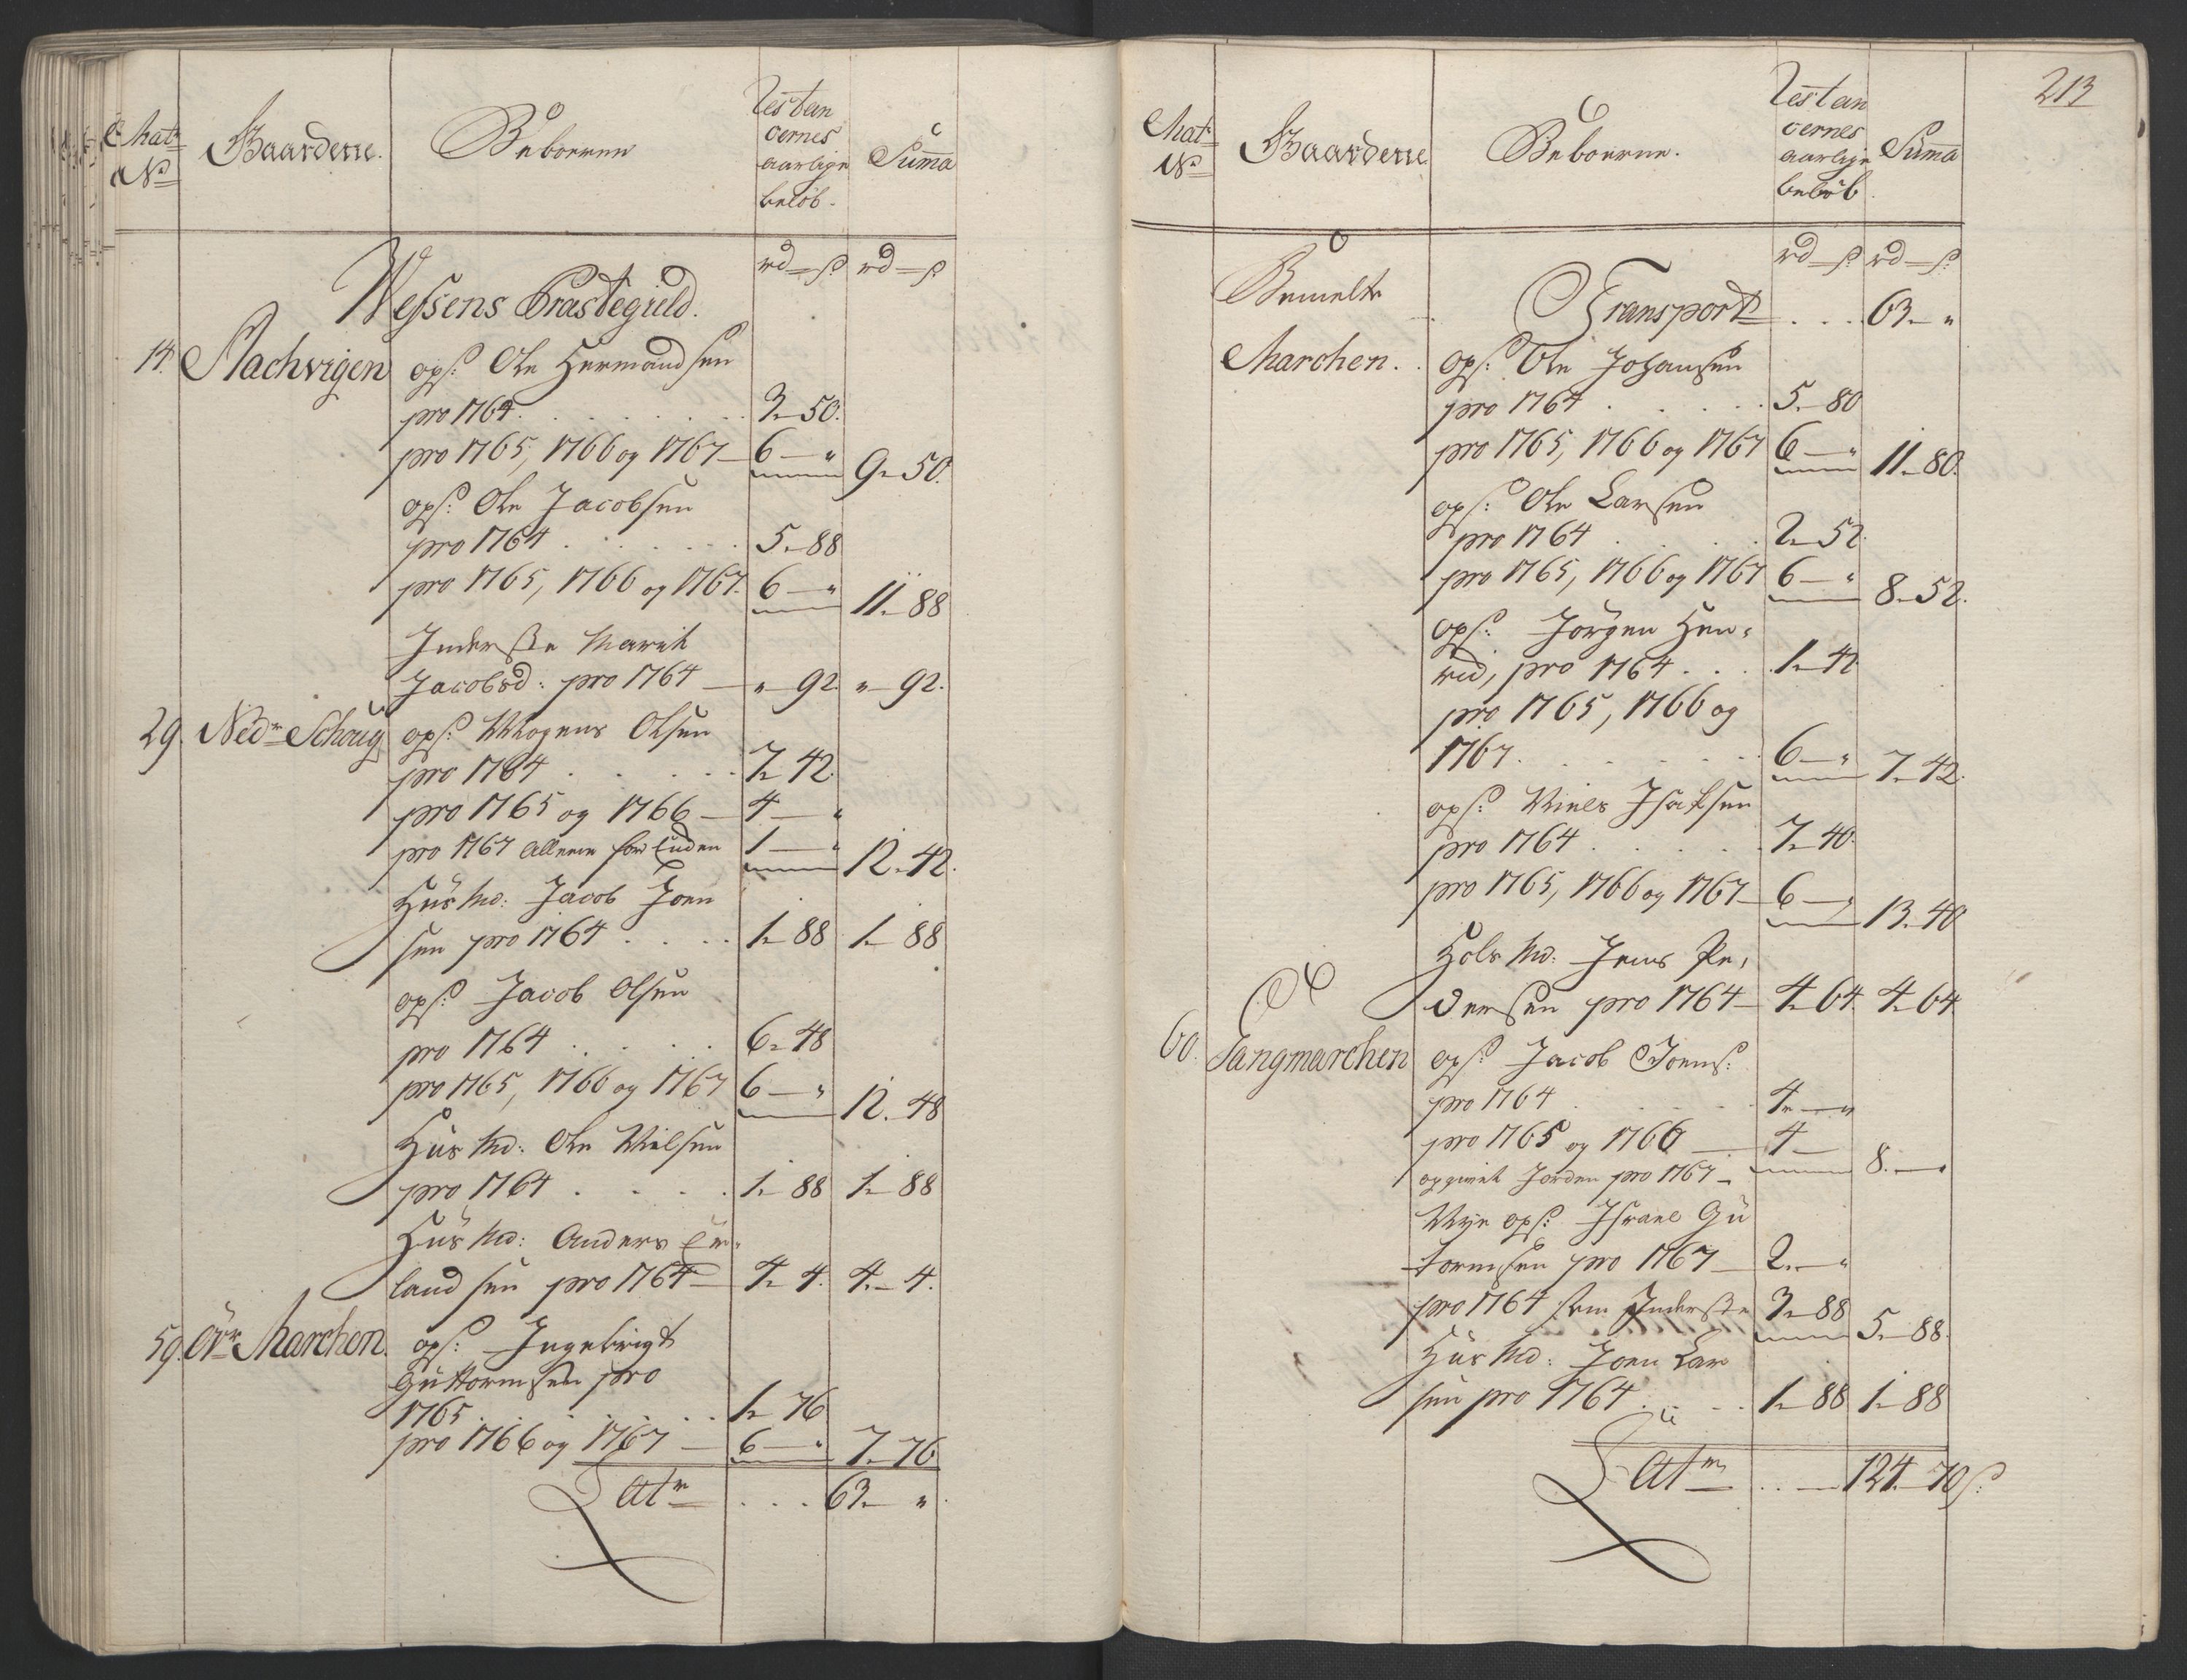 Mat:
No
Gaardene.
Beboerne
Restan
cernes
aarlige
beløb.
Summa
rd — s rd — s
Nessens Præstegield.
14. Aachvigen ops: Ole Hermandsen
pro 1764 . . . . 3 - 50.
pro 1765, 1766 og 1767 — 6 — " 9 - 50.
ops: Ole Jacobsen
pro 1764 . . . . 5 - 88
pro 1765, 1766 og 1767. 6 — " 11 - 88
Inderste Marit
Jacobsd: pro 1764 — " - 92. " - 92.
29. Nedr Schoug ops: Mogens Olsen
pro 1764 . . . . 7 - 42.
pro 1765 og 1766 — 4 — "
pro 1767 allene for Enden 1 — " 12 - 42.
Huus Md: Jacob Joen
sen pro 1764 . . . . 1 - 88 1 - 88
ops: Jacob Olsen
pro 1764 . . . . 6 - 48
pro 1765, 1766 og 1767 6 — " 12 - 48
Huus Md: Ole Nielsen
pro 1764 . . . . 1 - 88 1 - 88
Huus Md: Anders Er-
landsen pro 1764 — 4 - 4. 4 - 4.
59. Övr Marchen. ops: Ingebrigt
Guttormsen pro
1765 . . . . 1 - 76
pro 1766 og 1767 — 6 — " 7 - 76
Latr . . . 63 - " .
213
Mat:
No
Gaardene
Beboerne.
Restan
cernes
aarlige
beløb.
Summa
rd — s rd — s
Bemelte Transport . . . 63 - "
Marchen. ops: Ole Johansen
pro 1764 . . . . 5 - 80
pro 1765, 1766 og 1767 6 — " 11 - 80.
ops: Ole Larsen
pro 1764 . . . . 2 - 52.
pro 1765, 1766 og 1767 6 — " 8 - 52.
ops: Jörgen Hen-
rid, pro 1764 . . . 1 - 42
pro 1765, 1766 og
1767. . . . . 6 — " 7 - 42.
ops: Niels Isaksen
pro 1764 . . . . 7 - 40.
pro 1765, 1766 og 1767 — 6 — " 13 - 40
Hols Md: Jens Pe-
dersen pro 1764 — 4 - 64. 4 - 64
60. Tangmarchen ops: Jacob Joens:
pro 1764 . . . . 4 — "
pro 1765 og 1766 — 4 —
opgivet Jorden pro 1767 — 8. —
Nye ops: Israel Gu
tormsen pro 1767 — 2. — "
pro 1764 som Inderste 3 - 88 5 - 88.
Huus Md: Joen Lar
sen pro 1764 . . . 1 - 88 1 - 88
Latr . . — 124 - 70 s: